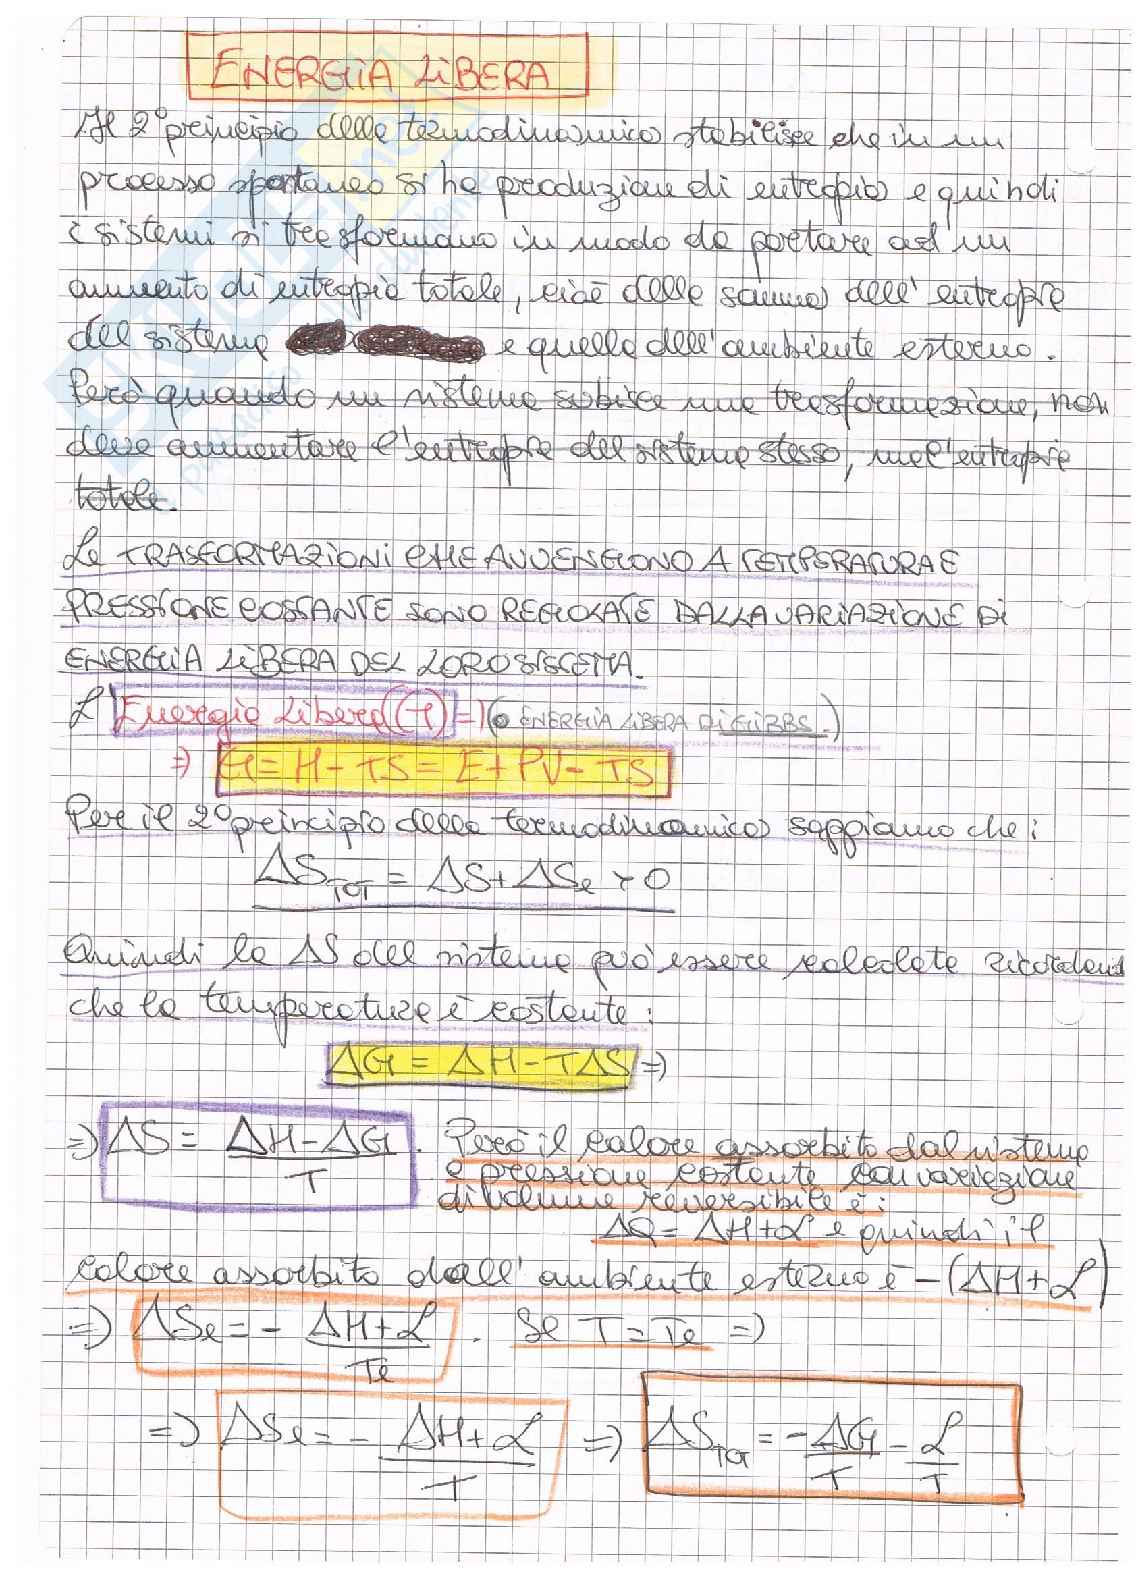 ENERGIA LIBERA
Il 2° principio della termodinamica stabilisce che in un
processo spontaneo si ha produzione di entropia e quindi
i sistemi si trasformano in modo da portare ad un
aumento di entropia totale, cioè della somma dell'entropia
del sistema e quella dell'ambiente esterno.
Però quando un sistema subisce una trasformazione, non
deve aumentare l'entropia del sistema stesso, ma l'entropia
totale.
Le TRASFORMAZIONI CHE AVVENGONO A TEMPERATURA E
PRESSIONE COSTANTE SONO REGOLATE DALLA VARIAZIONE DI
ENERGIA LIBERA DEL LORO SISTEMA.
L'Energia Libera (G) => (o ENERGIA LIBERA DI GIBBS.)
=> G = H - TS = E + PV - TS
Per il 2° principio della termodinamica sappiamo che:
ΔS_TOT = ΔS + ΔSe > 0
Quindi la ΔS del sistema può essere calcolata ricordando
che la temperatura è costante:
ΔG = ΔH - TΔS =>
=> ΔS = (ΔH - ΔG)/T . Però il calore assorbito dal sistema
a pressione costante con variazione
di volume reversibile è:
ΔQ = ΔH + L e quindi il
calore assorbito dall'ambiente esterno è -(ΔH + L)
=> ΔSe = - (ΔH + L)/Te . Se T = Te =>
=> ΔSe = - (ΔH + L)/T => ΔS_TOT = - ΔG/T - L/T